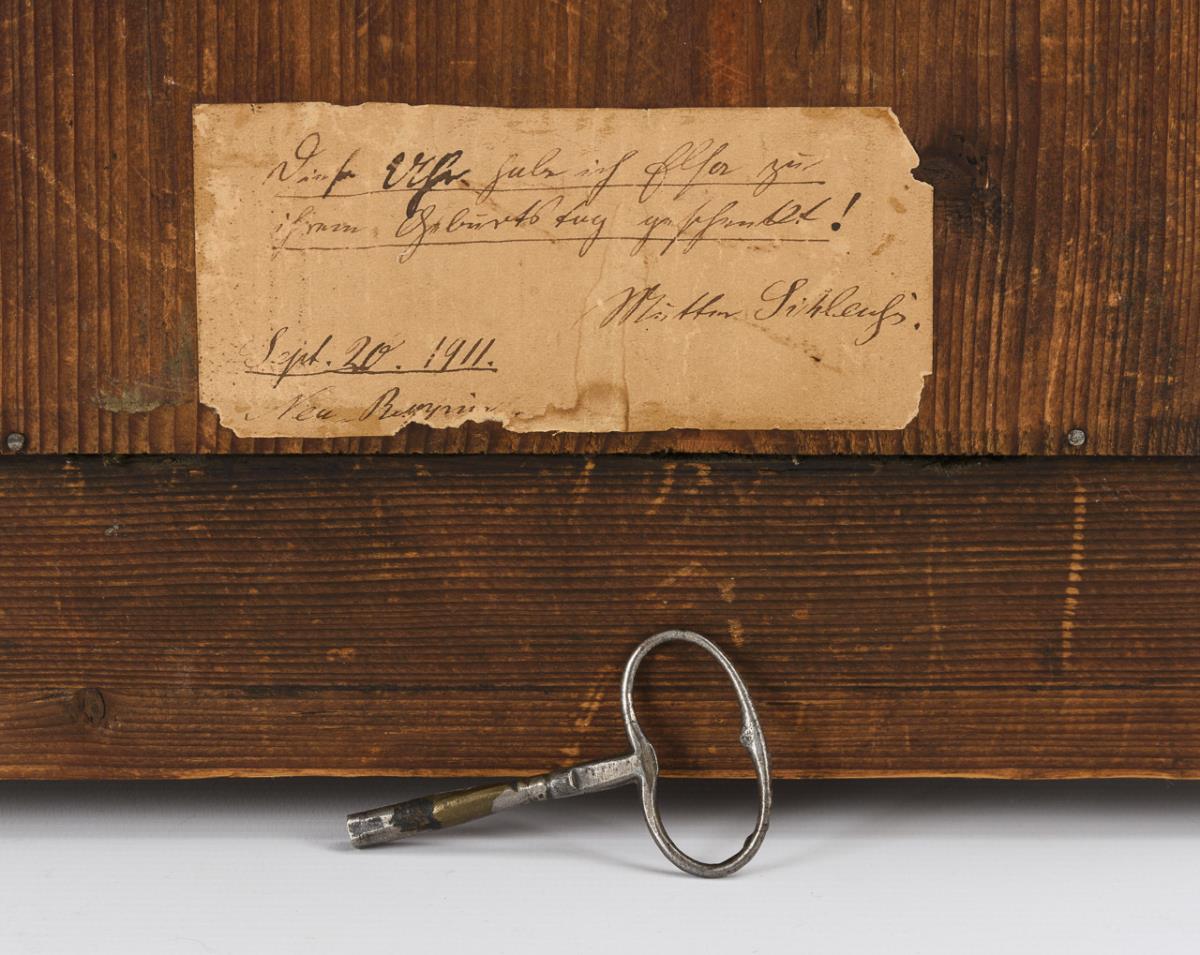 Diese Uhr habe ich Elsa zu
ihrem Geburtstag geschenkt!
Mutter
Sept. 20. 1911.
Neu